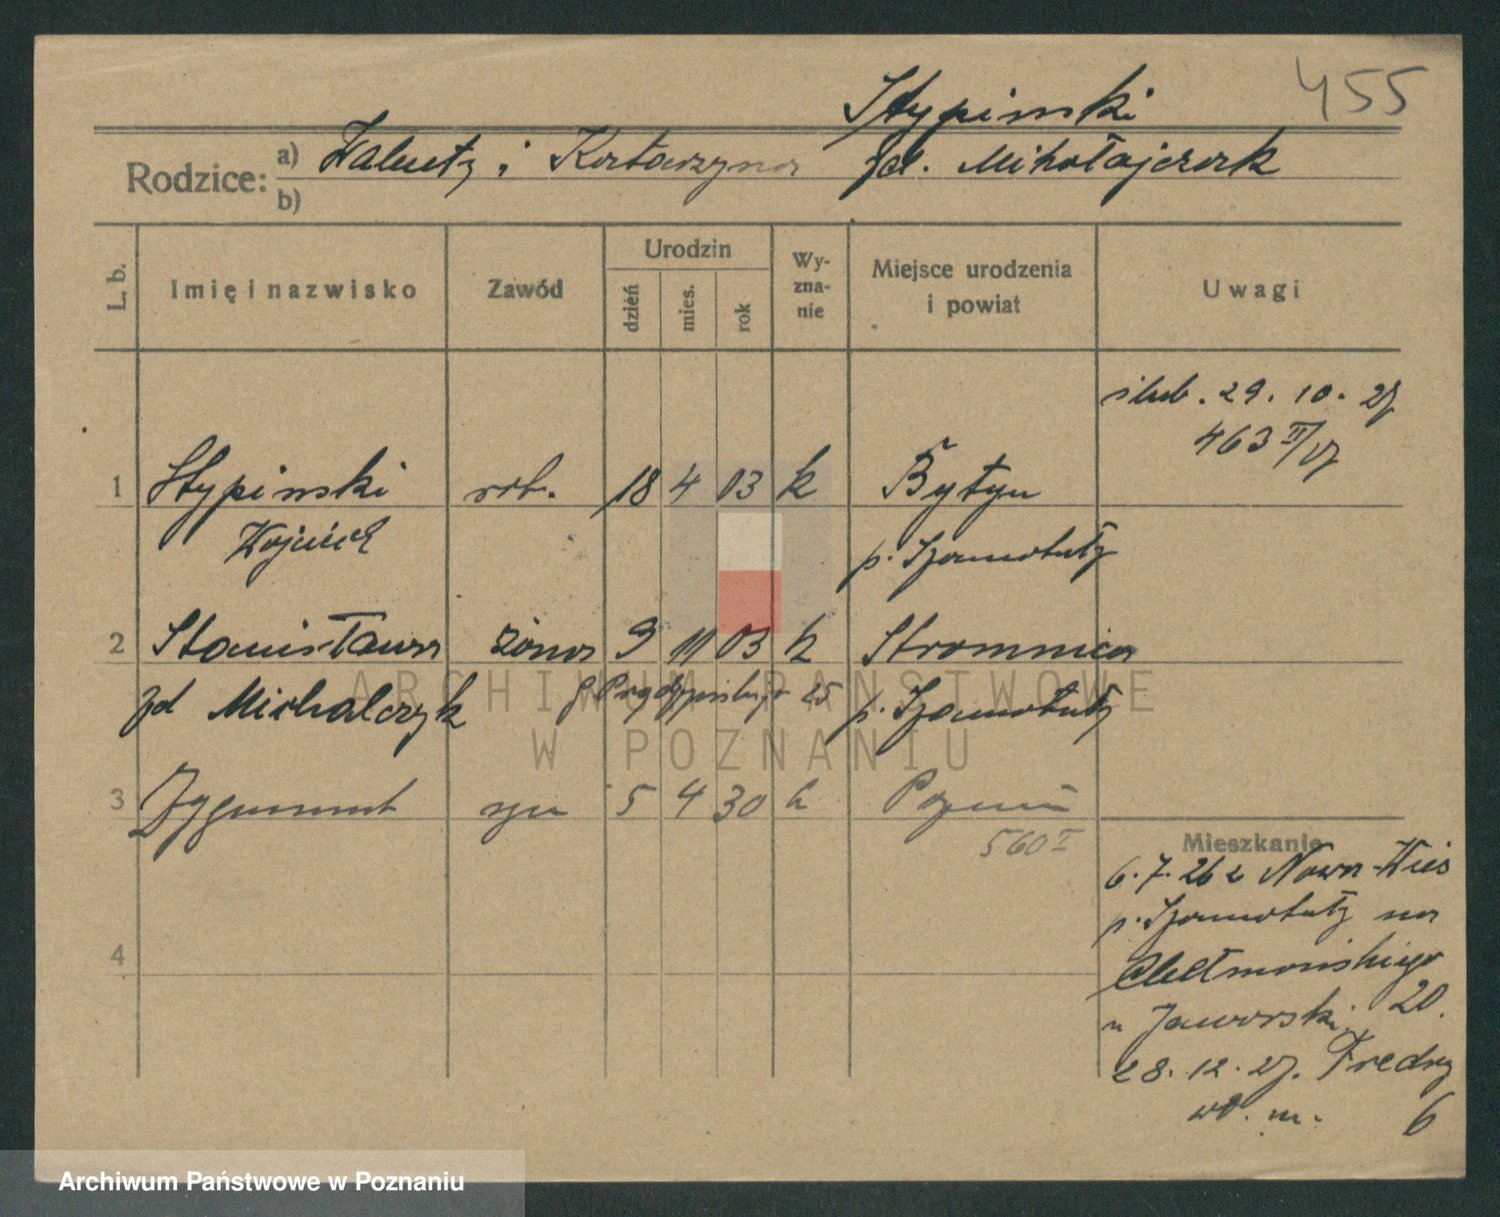 455
Stypinski
Rodzice:
a) Walenty i Katarzyna zd. Mikołajczak
b)
L. b.
Imię i nazwisko
Zawód
Urodzin
dzień
mies.
rok
Wy-
zna-
nie
Miejsce urodzenia
i powiat
Uwagi
ślub. 29. 10. 27
463 II/27
1 Stypinski rob. 18 4 03 k Bytyn
Wojciech p. Szamotuły
2 Stanisława żona 9 11 03 k Stromnica
zd Michalczyk p. Szamotuły
25
3 Zygmunt syn 5 4 30 k Poznań
560 I
4
Mieszkanie
6. 7. 26 z Nowa-Wieś
p. Szamotuły na
Chełmońskiego
u Jaworski 20.
28. 12. 27. Fredry
wł. m. 6
ARCHIWUM PAŃSTWOWE
W POZNANIU
Archiwum Państwowe w Poznaniu